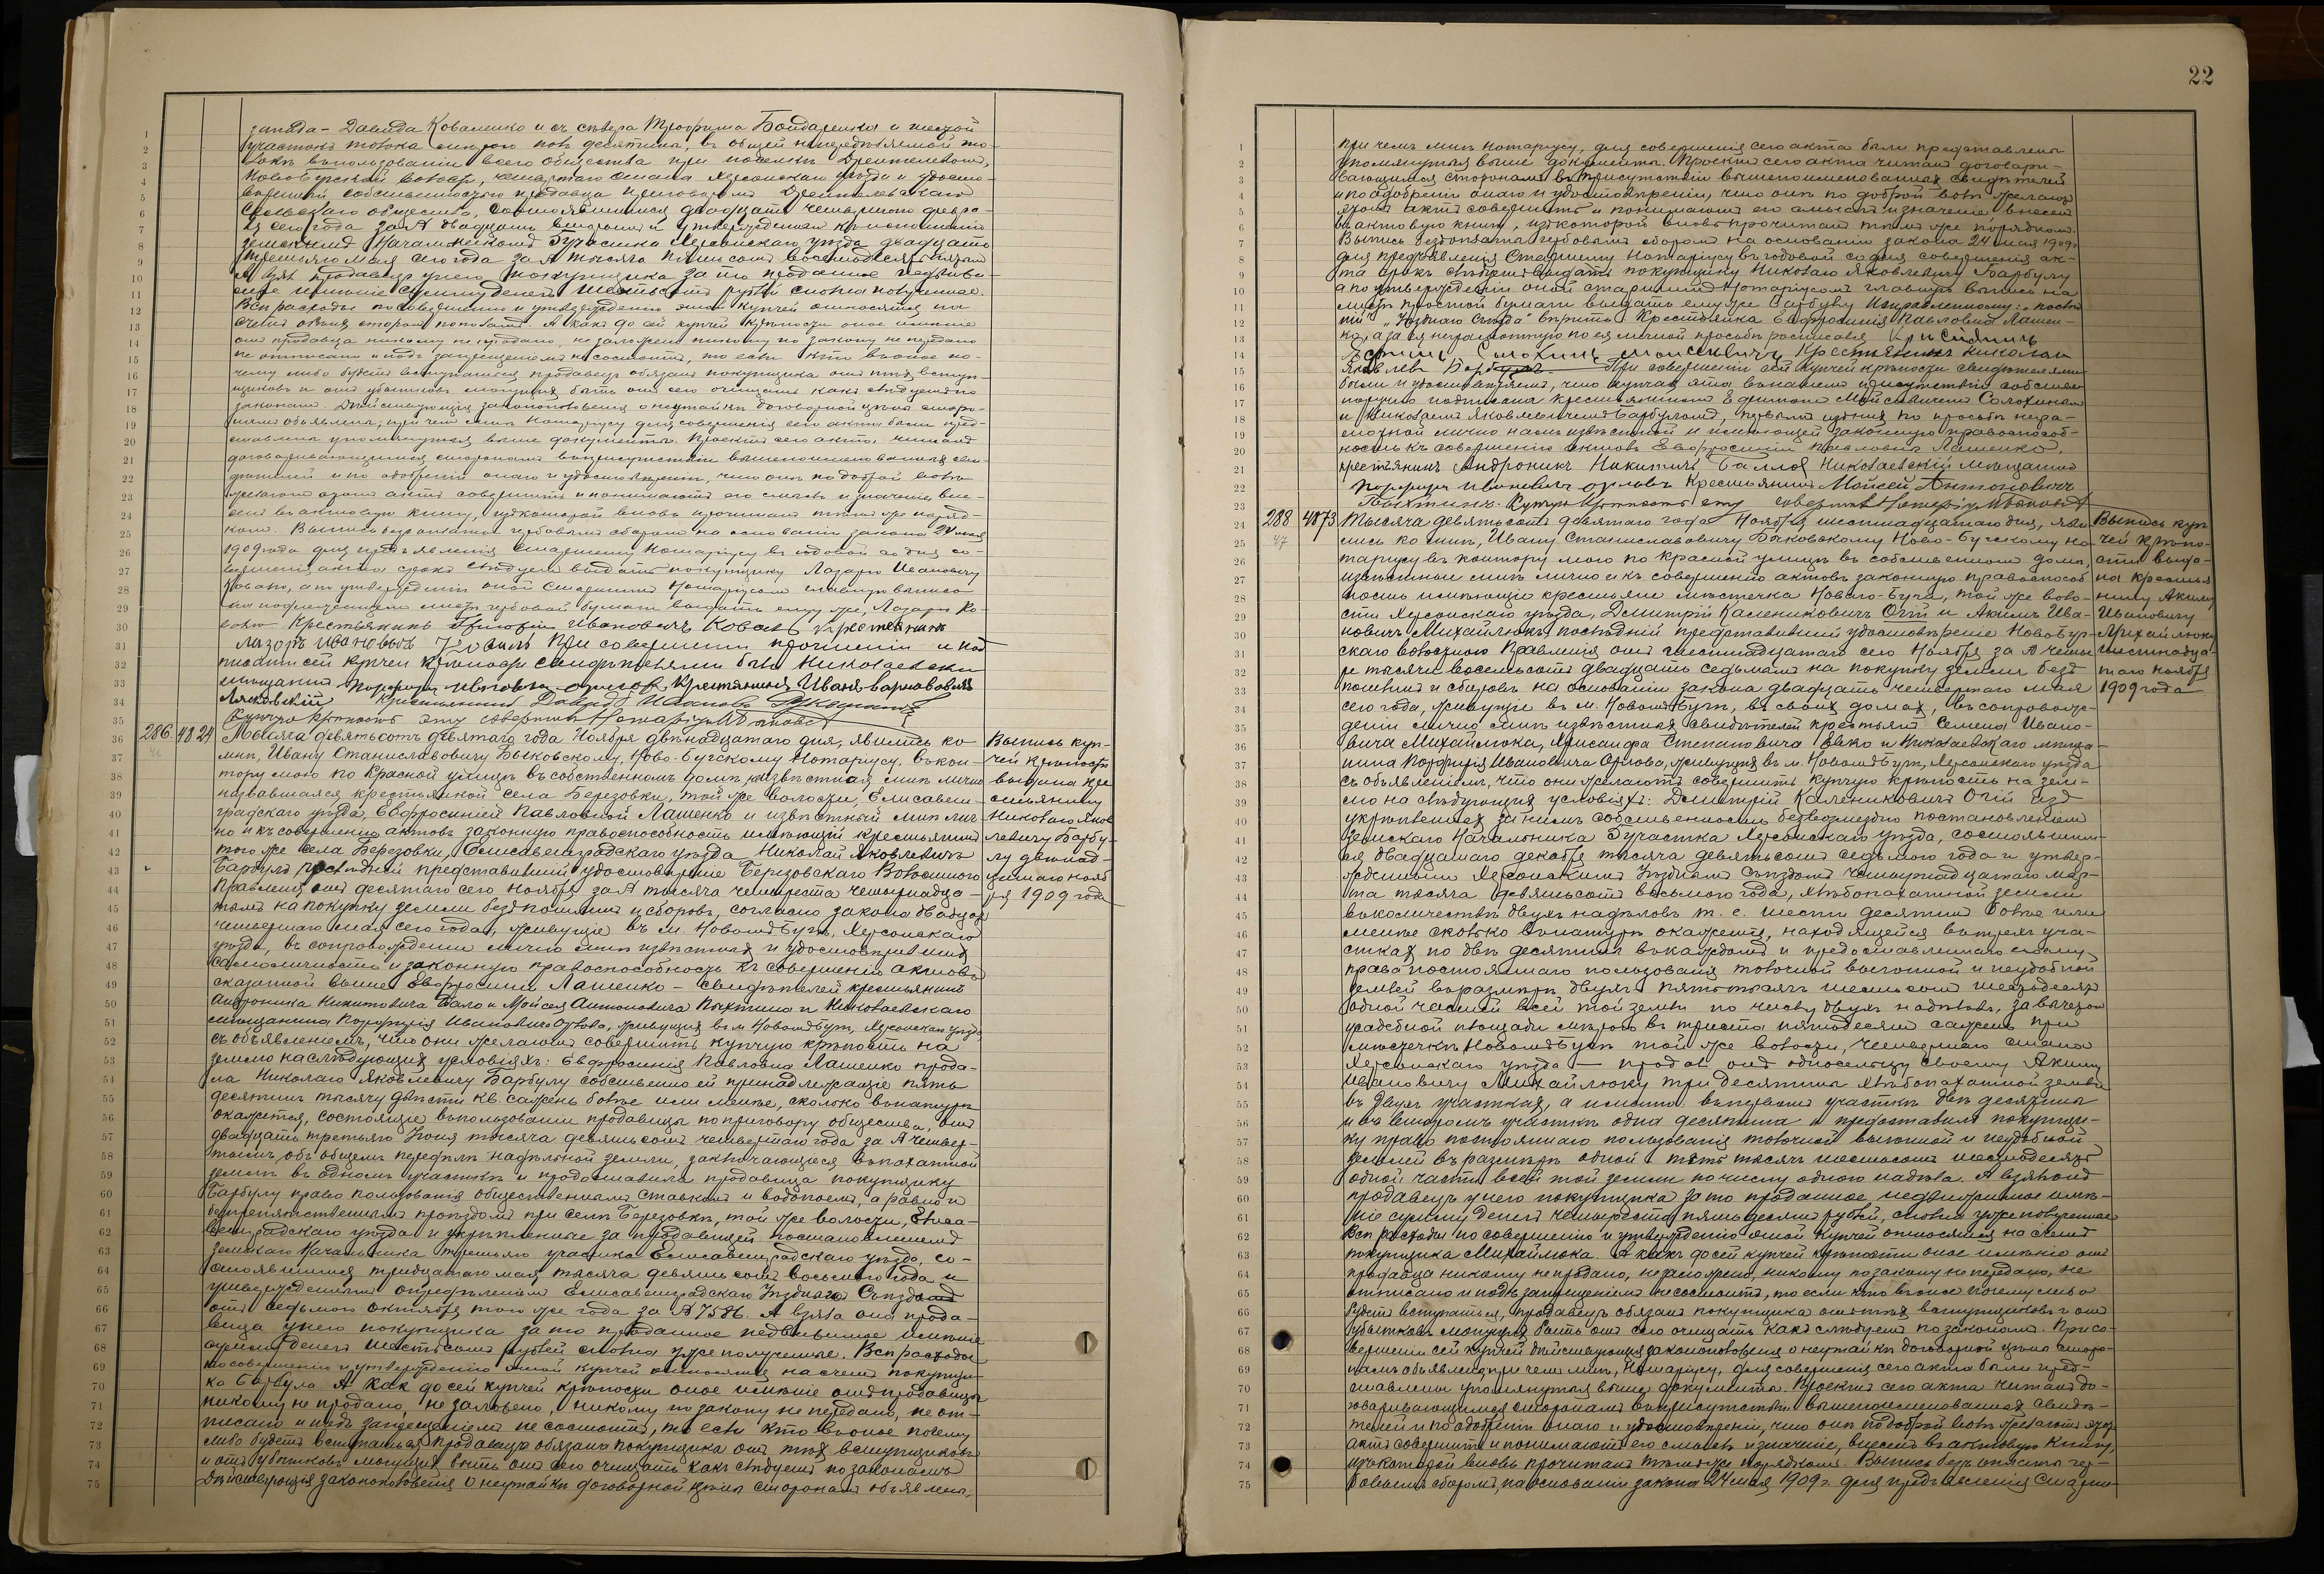 запада - Давида Коваленко и съ сѣвера Трофима Бондаренка и шестой
участокъ толока мѣрою полъ десятины, въ общей нераздѣляемой то-
локѣ въ пользованіи всего общества при поселкѣ
Новобугской волости, четвертаго стана Херсонскаго уѣзда и
собственностью продавца приговоромъ
Сельскаго общества, состоявшимся двадцать четвертаго февра-
ля сего года за №
Земскимъ Начальникомъ 3 участка Херсонскаго уѣзда двадцать
третьяго мая сего года за № тысяча пятьсотъ восемьдесятъ
А взялъ продавецъ у него покупщика за то проданное недвижи-
мое имѣніе сумму денегъ шестьсотъ рублей сполна полученные.
Всѣ расходы по совершенію и утвержденію этой купчей относятся на
счетъ обѣихъ сторонъ пополамъ. А какъ до сей купчей крѣпости оное имѣніе
отъ продавца никому не продано, не заложено никому по закону не передано
не отписано и подъ запрещеніемъ не состоитъ, то если кто въ оное по-
чему либо будетъ вступаться продавецъ обязанъ покупщика отъ тѣхъ вступ-
щиковъ и отъ убытковъ могущихъ быть отъ сего очищать какъ слѣдуетъ по
законамъ. Дѣйствующія законоположенія о неутайкѣ договорной цѣны сторо-
намъ объявлены; при чемъ мнѣ Нотаріусу для совершенія сего акта были пред-
ставлены упомянутые выше документы. Проектъ сего акта, читанъ
договаривающимся сторонамъ въ присутствіи вышепоименованныхъ сви-
дѣтелей и по одобреніи онаго и удостовѣреніи, что они по доброй волѣ
желаютъ этотъ актъ совершить и понимаютъ его смыслъ и значеніе, вне-
сенъ въ актовую книгу, изъ которой вновь прочитанъ тѣмъ же поряд-
комъ. Выпись безъ оплаты гербовымъ сборомъ на основаніи закона 24 мая
1909 года для предъявленія Старшему Нотаріусу въ годовой со дня со-
вершенія акта срокъ слѣдуетъ выдать покупщику Лазарю Ивановичу
Ковалю, а по утвержденіи оной Старшимъ Нотаріусомъ главную выпись
на подлежащемъ листѣ гербовой бумаги выдать ему же, Лазарю Ко-
валю Крестьянинъ Григорій Ивановичъ Коваль Крестьянинъ
Лазоръ Ивановъ Коваль При совершеніи прочтеніи и под
писаніи сей купчей крѣпости свидѣтелями были Николаевскій
мѣщанинъ Порфирій Ивановичъ Орловъ Крестьянинъ Иванъ Варнавовичъ
Лясковскій Крестьянинъ Давидъ Ивановъ
Купчую крѣпость эту совершилъ Нотаріусъ
286. 4824 Тысяча девятьсотъ девятаго года Ноября двѣнадцатаго дня, явились ко
мнѣ, Ивану Станиславовичу Быковскому, Ново-Бугскому Нотаріусу, въ кон-
тору мою по Красной улицѣ въ собственномъ домѣ неизвѣстная мнѣ лично
назвавшаяся крестьянкой села Березовки, той же волости, Елисавет-
градскаго уѣзда, Евфросиніей Павловной Лашенко и извѣстный мнѣ лич-
но и къ совершенію актовъ законную правоспособность имѣющій крестьянинъ
того же села Березовки, Елисаветградскаго уѣзда Николай Яковлевичъ
Барбулъ послѣдній представившій удостовѣреніе Березовскаго Волостного
Правленія отъ десятаго сего Ноября за № тысяча четыреста четырнадца-
тымъ на покупку земли безъ пошлинъ и сборовъ, согласно закона двадцать
четвертаго мая сего года, живущіе въ м. Новомъ Бугѣ, Херсонскаго
уѣзда, въ сопровожденіи лично мнѣ извѣстныхъ и удостовѣрившихъ
самоличность и законную правоспособность къ совершенію актовъ
сказанной выше Евфросиніи Лашенко - свидѣтелей крестьянъ
Андроника Никитовича Балло и Мойсея Антоновича Пыхтина и Николаевскаго
мѣщанина Порфирія Ивановича Орлова, живущихъ въ м. Новомъ Бугѣ, Херсонскаго уѣзда
съ объявленіемъ, что они желаютъ совершить купчую крѣпость на
землю на слѣдующихъ условіяхъ: Евфросинія Павловна Лашенко прода-
ла Николаю Яковлевичу Барбулу собственно ей принадлежащіе пять
десятинъ тысячу двѣсти кв. сажень болѣе или менѣе, сколько въ натурѣ
окажется, состоящіе въ пользованіи продавцы по приговору общества, отъ
двадцать третьяго Іюня тысяча девятьсотъ четвертаго года за № четвер-
тымъ, объ общемъ передѣлѣ надѣльной земли, заключающіеся въ пахатной
землѣ въ одномъ участкѣ и предоставила продавца покупщику
Барбулу право пользованія общественнымъ ставкомъ и водопоемъ, а равно и
безпрепятственнымъ проѣздомъ при селѣ Березовкѣ, той же волости, Елиса-
ветградскаго уѣзда и укрѣпленные за продавцей постановленіемъ
Земскаго Начальника третьяго участка Елисаветградскаго уѣзда, со-
стоявшимся тридцатаго мая тысяча девятьсотъ восьмого года и
утвержденнымъ опредѣленіемъ Елисаветградскаго Уѣзднаго Съѣзда
отъ седьмого октября того же года за № 7586. А взяла она прода-
вица у него покупщика за то проданное недвижимое имѣніе
сумму денегъ шестьсотъ рублей сполна уже полученные. Всѣ расходы
по совершенію и утвержденію этой купчей относятся на счетъ покупщи-
ка Барбула А какъ до сей купчей крѣпости оное имѣніе отъ продавца
никому не продано, не заложено, никому по закону не передано, не от-
писано и подъ запрещеніемъ не состоитъ, то если кто въ оное почему
либо будетъ вступаться, продавца обязана покупщика отъ тѣхъ вступщиковъ
и отъ убытковъ могущихъ быть отъ сего очищать какъ слѣдуетъ по законамъ
Дѣйствующія законоположенія о неутайкѣ договорной цѣны сторонамъ объявлены;
Выпись куп-
чей крѣпости
выдана кре
стьянину
Николаю Яков
левичу Барбу-
лу двѣнад-
цатаго нояб
ря 1909 года
22
при чемъ мнѣ Нотаріусу, для совершенія сего акта были представлены
упомянутые выше документы. Проектъ сего акта читанъ договари-
вающимся сторонамъ въ присутствіи вышепоименованныхъ свидѣтелей
и по одобреніи онаго и удостовѣреніи, что они по доброй волѣ желаютъ
этотъ актъ совершить и понимаютъ его смыслъ и значеніе, внесенъ
въ актовую книгу, изъ которой вновь прочитанъ тѣмъ же порядкомъ.
Выпись безъ оплаты гербовымъ сборомъ на основаніи закона 24 мая 1909 г.
для предъявленія Старшему Нотаріусу въ годовой со дня совершенія ак-
та срокъ слѣдуетъ выдать покупщику Николаю Яковлевичу Барбулу
а по утвержденіи оной старшимъ Нотаріусомъ главную выпись на
листѣ простой бумаги выдать ему же Барбулу Исправленному: „послѣд
ній" „Уѣзднаго Съѣзда" вѣрить Крестьянка Евфросинія Павловна Лашен-
кова, а за ея неграмотную по ея личной просьбѣ росписался Крисьянинъ
Ефимъ Солохинъ Моисѣевичъ Крестьянинъ Николай
Яковлевъ Барбулъ. При совершеніи сей купчей крѣпости свидѣтелями
были и удостовѣряемъ, что купчая эта въ нашемъ присутствіи собствен
норучно подписана крестьяниномъ Ефимомъ Мойсѣевичемъ Солохинымъ
и Николаемъ Яковлевичемъ Барбуломъ, первымъ изъ нихъ по просьбѣ негра-
мотной лично намъ извѣстной и имѣющей законную правоспособ-
ность къ совершенію актовъ Евфросиніи Павловны Лашенко.
крестьянинъ Андроникъ Никитичъ Баллоя Николаевскій мѣщанинъ
Порфирій Ивановичъ Орловъ Крестьянинъ Мойсей Антоновичъ
Пыхтинъ. Купчую Крѣпость эту совершилъ Нотаріусъ
288 4873 Тысяча девятьсотъ девятаго года Ноября шестнадцатаго дня, яви
47 лись ко мнѣ, Ивану Станиславовичу Быковскому Ново-Бугскому но-
таріусу въ контору мою по Красной улицѣ въ собственномъ домѣ,
извѣстные мнѣ лично и къ совершенію актовъ законную правоспособ
ность имѣющіе крестьяне мѣстечка Новаго-Буга, той же воло-
сти Херсонскаго уѣзда, Дмитрій Каленниковичъ Огій и Акимъ Ива-
новичъ Михайлюкъ, послѣдній представившій удостовѣреніе Новобуг-
скаго волостного Правленія отъ шестнадцатаго сего Ноября за № четы
ре тысячи восемьсотъ двадцать седьмымъ на покупку земли безъ
пошлинъ и сборовъ на основаніи закона двадцать четвертаго мая
сего года, живущіе въ м. Новомъ Бугѣ, въ своихъ домахъ, въ сопровож-
деніи лично мнѣ извѣстныхъ свидѣтелей крестьянъ Семена Ивано-
вича Михайлюка, Хрисанфа Степановича Евко и Николаевскаго мѣща-
нина Порфирія Ивановича Орлова, живущихъ въ м. Новомъ Бугѣ, Херсонскаго уѣзда
съ объявленіемъ, что они желаютъ совершить купчую крѣпость на зем-
лю на слѣдующихъ условіяхъ: Дмитрій Каленниковичъ Огій изъ
укрѣпленныхъ за нимъ собственностью безвозмездно постановленіемъ
Земскаго Начальника 3 участка Херсонскаго уѣзда, состоявшим-
ся двадцатаго декабря тысяча девятьсотъ седьмого года и утвер-
жденнымъ Херсонскимъ Уѣзднымъ Съѣздомъ четырнадцатаго мар-
та тысяча девятьсотъ восьмого года, хлѣбопахатной земли
въ количествѣ двухъ надѣловъ т. е. шести десятинъ болѣе или
менѣе сколько въ натурѣ окажется, находящейся въ трехъ уча-
сткахъ по двѣ десятины въ каждомъ и предоставленнаго ему
права постояннаго пользованія толочной выгонной и неудобной
землей въ размѣрѣ двухъ пятьтысячъ шестьсотъ шестьдесятъ
одной частей всей той земли по числу двухъ надѣловъ, за вычетомъ
усадебной площади мѣрою въ триста пятьдесятъ сажень при
мѣстечкѣ Новомъ Бугѣ той же волости, четвертаго стана
Херсонскаго уѣзда — продалъ онъ односельцу своему Акиму
Ивановичу Михайлюку три десятины хлѣбопахатной земли
въ двухъ участкахъ, а именно: въ первомъ участкѣ двѣ десятины
и во второмъ участкѣ одна десятина и предоставилъ покупщи-
ку право постояннаго пользованія толочной выгонной и неудобной
землей въ размѣрѣ одной пять тысячъ шестьсотъ шестьдесятъ
одной части всей той земли по числу одного надѣла. А взялъ онъ
продавецъ у него покупщика за то проданное недвижимое имѣ-
ніе сумму денегъ четыреста пятьдесятъ рублей, сполна уже полученные
Всѣ расходы по совершенію и утвержденію этой купчей относятся на счетъ
покупщика Михайлюка. А какъ до сей купчей крѣпости оное имѣніе отъ
продавца никому не продано, не заложено, никому по закону не передано, не
отписано и подъ запрещеніемъ не состоитъ, то если кто въ оное почему либо
будетъ вступаться, продавецъ обязанъ покупщика отъ тѣхъ вступщиковъ и отъ
убытковъ могущихъ быть отъ сего очищать какъ слѣдуетъ по законамъ. При со-
вершеніи сей купчей дѣйствующія законоположенія о неутайкѣ договорной цѣны сторо-
намъ объявлены; при чемъ мнѣ, Нотаріусу, для совершенія сего акта были пред-
ставлены упомянутые выше документы. Проектъ сего акта читанъ до-
говаривающимся сторонамъ въ присутствіи вышепоименованныхъ свидѣ-
телей и по одобреніи онаго и удостовѣреніи, что они по доброй волѣ желаютъ этотъ
актъ совершить и понимаютъ его смыслъ и значеніе, внесенъ въ актовую книгу,
изъ которой вновь прочитанъ тѣмъ же порядкомъ. Выпись безъ оплаты гер-
бовымъ сборомъ, на основаніи закона 24 мая 1909 г. для предъявленія Старше-
Выпись куп
чей крѣпо-
сти выда-
на крестья
нину Акиму
Ивановичу
Михайлюку
шестнадца-
таго ноября
1909 года